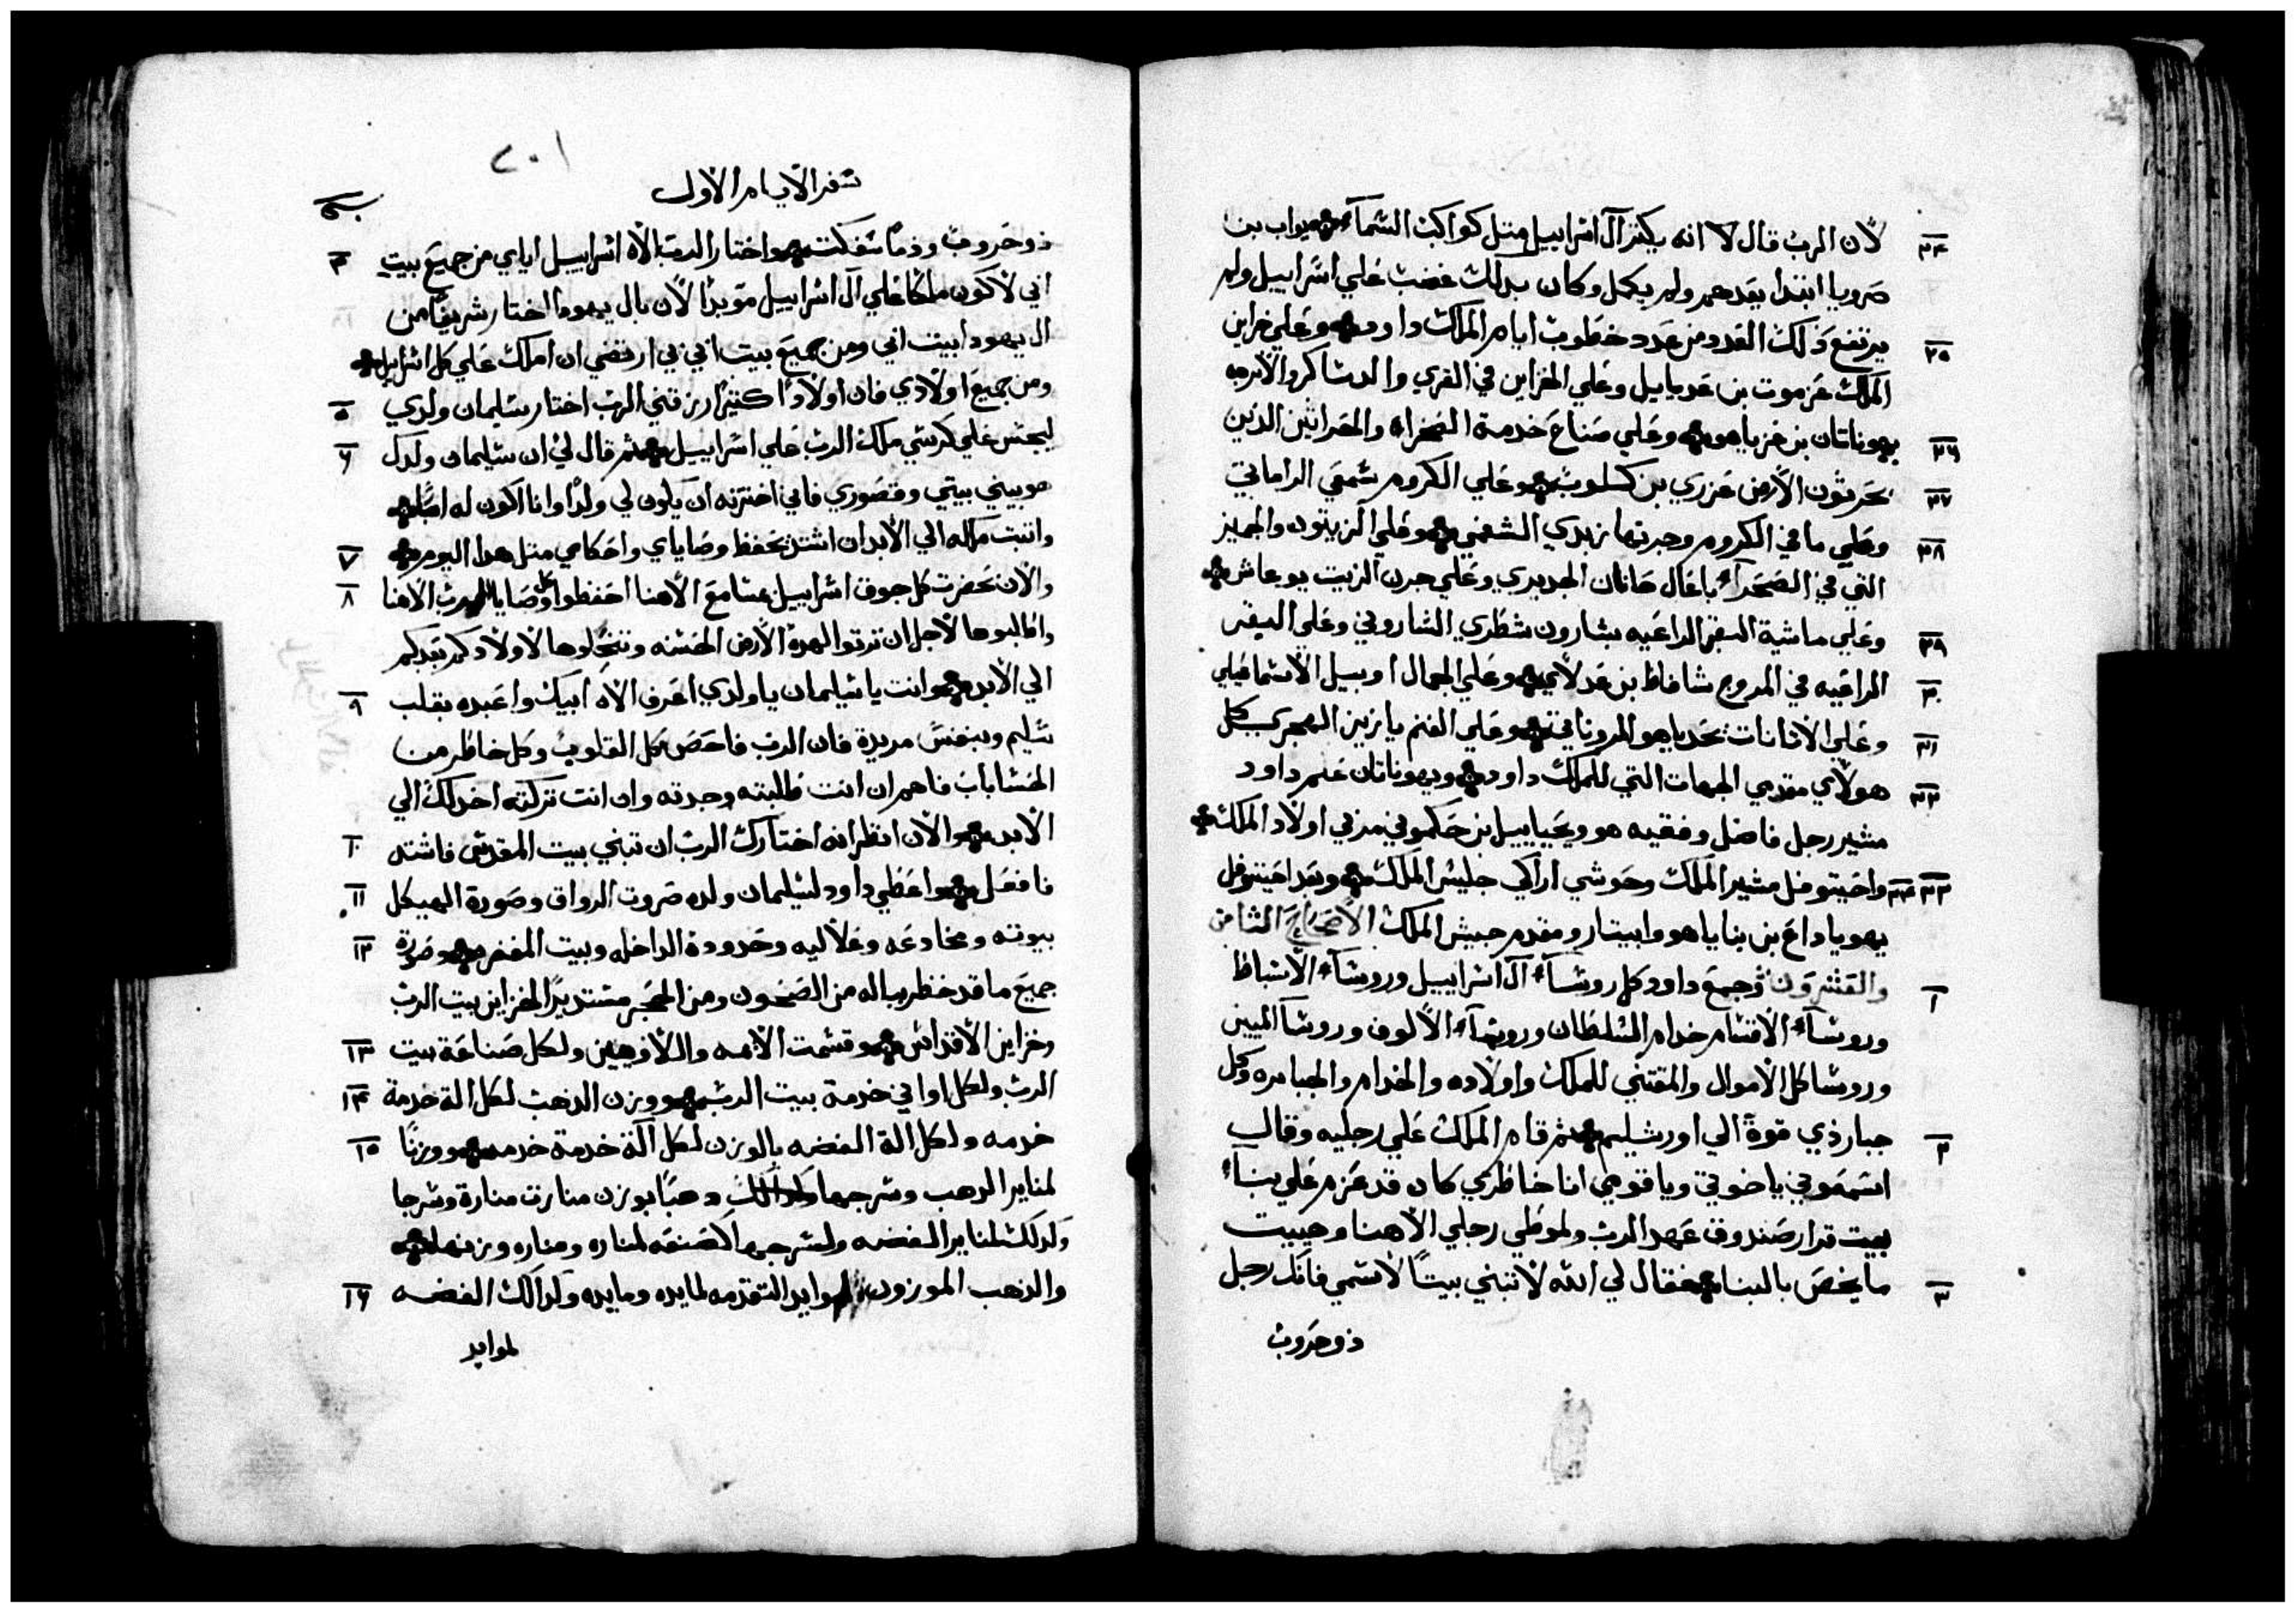 ٢٤ لان الرب قال لا انه يكثر آل اسراييل مثل كواكب السمآء يواب بن
صرويا ابتدا بعدهم ولم يكمل وكان بدلك غضب علي اسراييل ولم
٢٥ يرتفع ذلك العدد من عدد خطوب ايام الملك داود وعلي خزاين
الملك عزموت بن عدياييل وعلي الخزاين في القري والدساكر والابرجه
٢٦ يهوناتان بن عزياهو وعلي صناع خدمة الصحراء والحراثين الذين
٢٧ يحرثون الارض عزري بن كسلوب وعلي الكروم شمعي الراماتي
٢٨ وعلي ما في الكروم وجرتها زبدي الشفمي وعلي الزيتون والجميز
التي في الصحرآء باعال حانان الجديري وعلي جرن الزيت يوعاش
٢٩ وعلي ماشية البقر الراعيه بشارون شطري الشاروني وعلي البقر
٣٠ الراعيه في المروج شافاط بن عدلاي وعلي الجمال اوبييل الاسماعيلي
٣١ وعلي الاتانات يحدياهو المروناتي وعلي الغنم يازيز الهجري كل
٣٢ هولاي مقدمي الجهات التي للملك داود ويهوناتان عم داود
مشير رجل فاضل وفقيه هو ويحياييل بن حكموني مربي اولاد الملك
٣٣ ٣٤ واحيتوفل مشير الملك وحوشي اراكي جليس الملك وبعد احيتوفل
يهوياداع بن بناياهو وابيتار ومقدم جيش الملك الاصحاح الثامن
١ والعشرون وجمع داود كل روسآء آل اسراييل وروسآء الاسباط
وروسآء الاقسام خدام السلطان وروسآء الالوف وروسآ الميين
وروسا كل الاموال والمقتني للملك واولاده والخدام والجبابره وكل
٢ جبار ذي قوة الي اورشليم ثم قام الملك علي رجليه وقال
اسمعوني ياخوتي ويا قومي انا خاطري كان قد عزم علي بنآء
بيت قرار صندوق عهد الرب ولموطي رجلي الاهنا وهييت
٣ ما يخص بالبنا فقال لي الله لا تبني بيتًا لاسمي فانك رجل
ذو حروب
٢٠١
سفر الايام الاول
٤ ذو حروب ودمًا سفكت واختار الرب الاه اسراييل اياي من جميع بيت
ابي لاكون ملكًا علي آل اسراييل موبدًا لان بال يهودا اختار شريفًا من
ال يهودا بيت ابي ومن جميع بيت ابي بي ارتضي ان املك علي كل اسراييل
٥ ومن جميع اولادي فان اولادًا كثيرًا رزقني الرب اختار سليمان ولدي
٦ ليجلس علي كرسي ملك الرب علي اسراييل ثم قال لي ان سليمان ولدك
هو يبني بيتي وقصوري فاني اخترته ان يكون لي ولدًا وانا اكون له ابًا
٧ واتبت ملكه الي الابد ان اشتد بحفظ وصاياي واحكامي مثل هدا اليوم
٨ والان بحضرت كل جوق اسراييل بمسامع الاهنا احفظوا كل وصايا الرب الاهنا
واطلبوها لاجل ان ترثوا لهده الارض الحسنه وتنحلوها لاولادكم بعدكم
٩ الي الابد وانت يا سليمان يا ولدي اعرف الاه ابيك واعبده بقلب
سليم وبنفس مريدة فان الرب فاحص كل القلوب وكل خاطر من
الحسابات فاهم ان انت طلبته وجدته وان انت تركته اخدلك الي
١٠ الابد والان انظر انه اختارك الرب ان تبني بيت المقدس فاشتد
١١ فافعل واعطي داود لسليمان ولده صروت الرواق وصورة الهيكل
١٢ بيوته ومخادعه وعلاليه وحدوده الداخله وبيت الغفر وصورة
جميع ما قد خطر بباله من الصحون ومن الحجر مستديرًا لخزاين بيت الرب
١٣ وخزاين الاقداس وقسمت الايمه والاوهيين ولكل صناعة بيت
١٤ الرب ولكل اواني خدمة بيت الرب ووزن الدهب لكل الة خدمة
١٥ خدمه ولكل الة الفضه بالوزن لكل آلة خدمة خدمه ووزنًا
لمناير الدهب وسرجها دهبًا بوزن منارت منارة وسرجها
ولدلك لمناير الفضه ولسرجها كصنعه لمناره ومناره وزنها
١٦ والدهب الموزون لموايد التقدمه لمايده ومايده ولدالك الفضه
لموايد